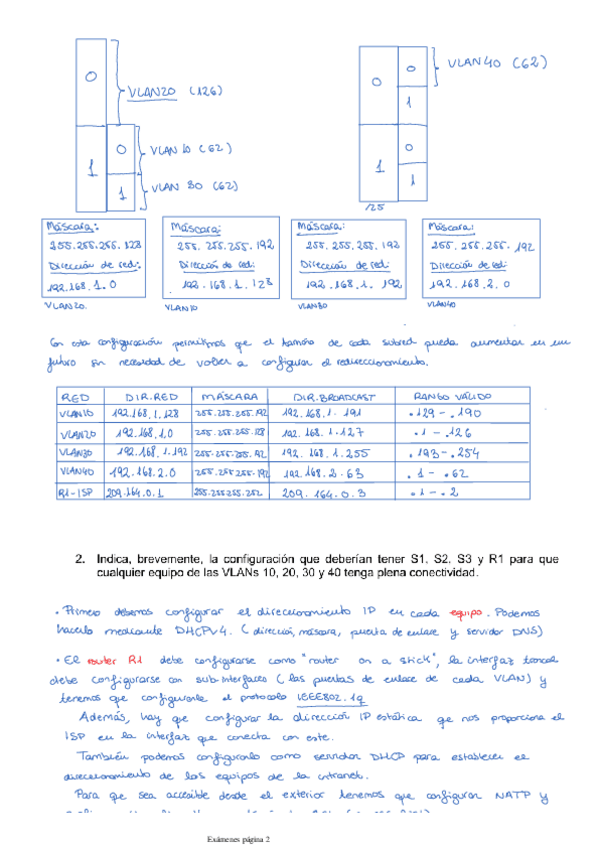 0
VLAN20 (126)
1
0
VLAN 10 (62)
1
VLAN 30 (62)
0
0
VLAN40 (62)
1
1
0
1
125
Máscara:
255.255.255.128
Dirección de red:
192.168.1.0
VLAN20
Máscara:
255.255.255.192
Dirección de red:
192.168.1.128
VLAN10
Máscara:
255.255.255.192
Dirección de red:
192.168.1.192
VLAN30
Máscara:
255.255.255.192
Dirección de red:
192.168.2.0
VLAN40
Con esta configuración permitimos que el tamaño de cada subred pueda aumentar en un
futuro sin necesidad de volver a configurar el redireccionamiento.
RED DIR.RED MÁSCARA DIR.BROADCAST RANGO VÁLIDO
VLAN10 192.168.1.128 255.255.255.192 192.168.1.191 .129 - .190
VLAN20 192.168.1.0 255.255.255.128 192.168.1.127 .1 - .126
VLAN30 192.168.1.192 255.255.255.192 192.168.1.255 .193 - .254
VLAN40 192.168.2.0 255.255.255.192 192.168.2.63 .1 - .62
R1-ISP 209.164.0.1 255.255.255.252 209.164.0.3 .1 - .2
2. Indica, brevemente, la configuración que deberían tener S1, S2, S3 y R1 para que
cualquier equipo de las VLANs 10, 20, 30 y 40 tenga plena conectividad.
• Primero debemos configurar el direccionamiento IP en cada equipo. Podemos
hacerlo mediante DHCPv4. (dirección, máscara, puerta de enlace y servidor DNS)
• El router R1 debe configurarse como "router on a stick", la interfaz troncal
debe configurarse con subinterfaces (las puertas de enlace de cada VLAN) y
tenemos que configurarle el protocolo IEEE802.1q
Además, hay que configurar la dirección IP estática que nos proporciona el
ISP en la interfaz que conecta con este.
También podemos configurarlo como servidor DHCP para establecer el
direccionamiento de los equipos de la intranet.
Para que sea accesible desde el exterior tenemos que configurar NATP y
Exámenes página 2